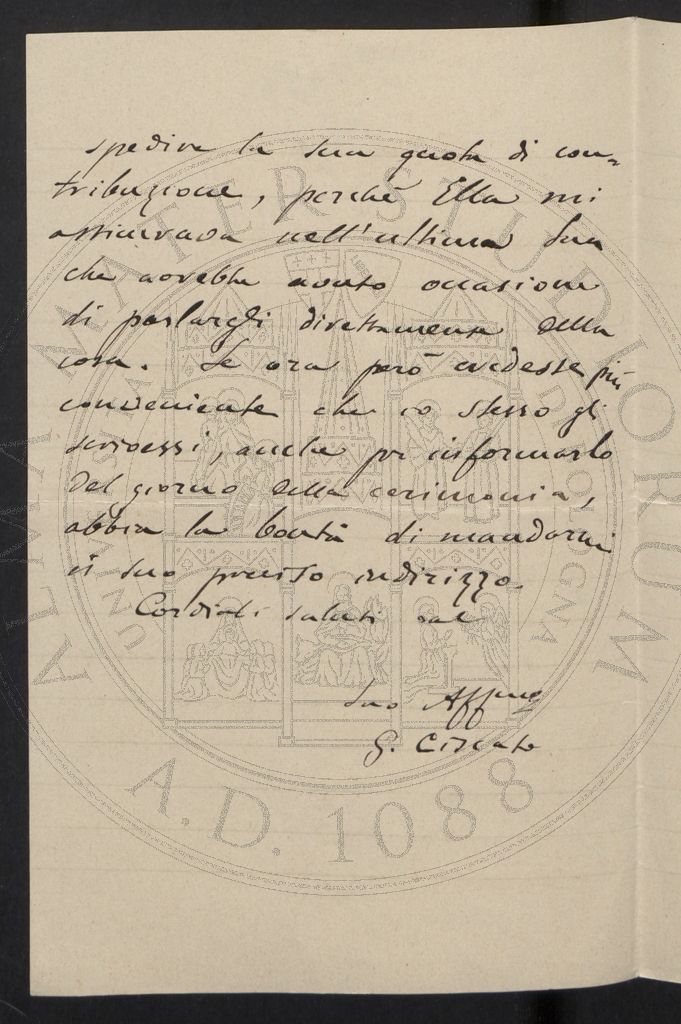 spedire la sua quota di con-
tribuzione, perché Ella mi
assicurava nell'ultima Sua
che avrebbe avuto occasione
di parlargli direttamente della
cosa. Se ora però credesse più
conveniente che io stesso gli
scrivessi, anche per informarlo
del giorno della cerimonia,
abbia la bontà di mandarmi
il suo preciso indirizzo.
Cordiali saluti dal
Suo Affmo
G. Ciscato
ALMA MATER STUDIORUM
A.D. 1088